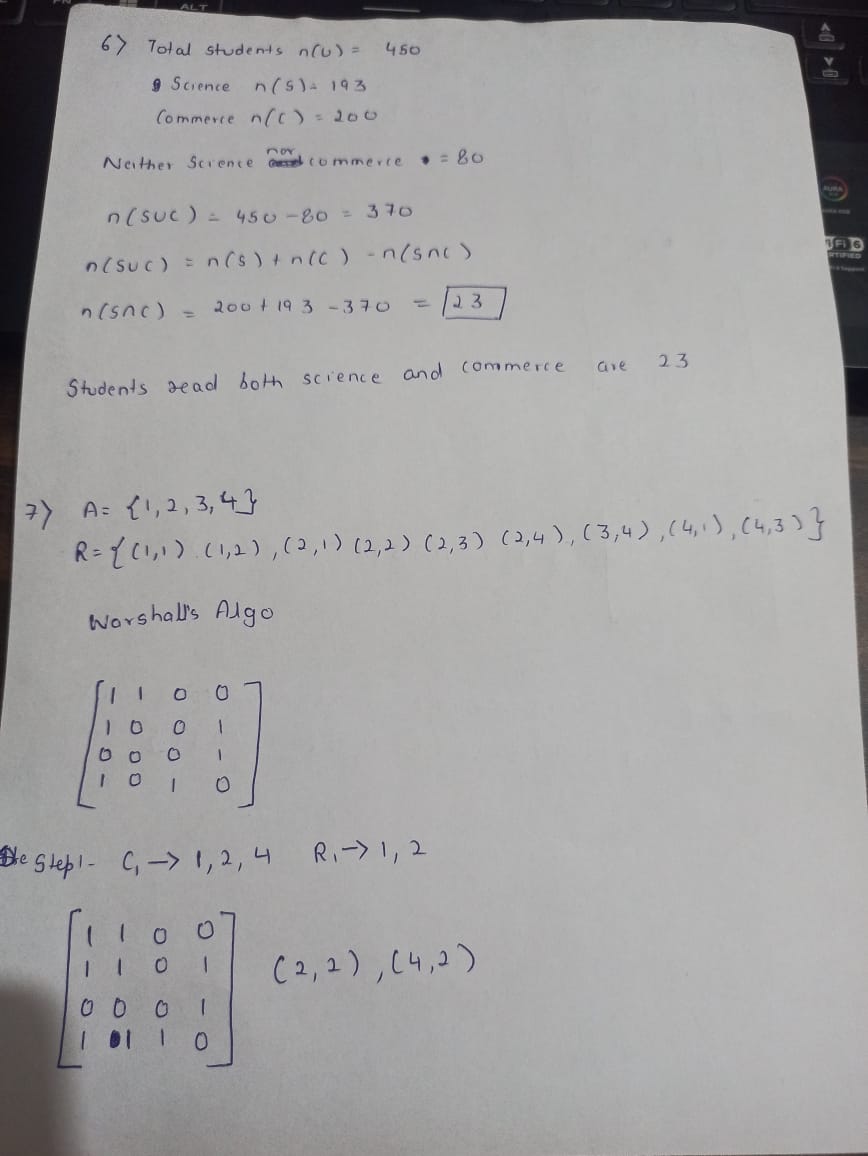 ALT
6) Total students n(U) = 450
Science n(S) = 193
Commerce n(C) = 200
Neither Science nor commerce = 80
n(SUC) = 450 - 80 = 370
n(SUC) = n(S) + n(C) - n(S∩C)
n(S∩C) = 200 + 193 - 370 = 23
Students read both science and commerce are 23
7) A = {1,2,3,4}
R = {(1,1) (1,2), (2,1) (2,2) (2,3) (2,4), (3,4), (4,1), (4,3)}
Warshall's Algo
1 1 0 0
1 0 0 1
0 0 0 1
1 0 1 0
Step1- C₁ → 1, 2, 4 R₁ → 1, 2
1 1 0 0
1 1 0 1 (2,2), (4,2)
0 0 0 1
1 1 1 0
AURA
Fi 6